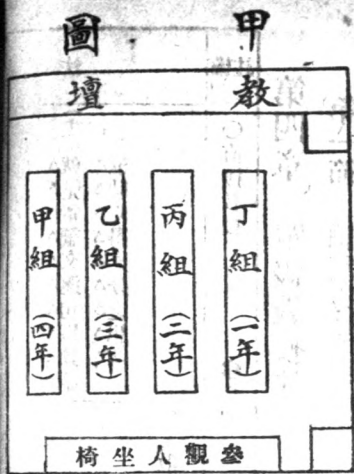 甲圖
教壇
丁組（一年）
丙組（二年）
乙組（三年）
甲組（四年）
參觀人坐椅